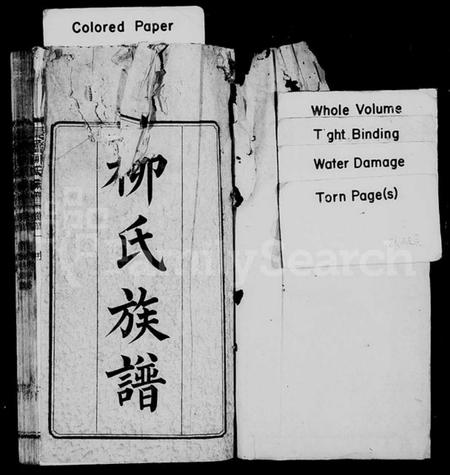 Colored Paper
柳氏族譜
Whole Volume
Tight Binding
Water Damage
Torn Page(s)
FamilySearch